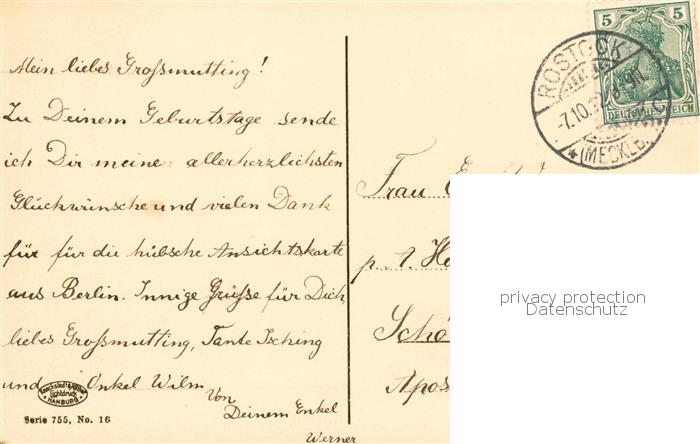 Mein liebes Großmutting!
Zu Deinem Geburtstage sende
ich Dir meine allerherzlichsten
Glückwünsche und vielen Dank
für für die hübsche Ansichtskarte
aus Berlin. Innige Grüße für Dich
liebes Großmutting, Tante Isching
und Onkel Wilm
Von
Deinem Enkel
Werner
HAMBURG
Serie 755, No. 16
5 5
DEUTSCHES REICH
ROSTOCK
(MECKLB.)
Frau
p. 1.
privacy protection
Datenschutz